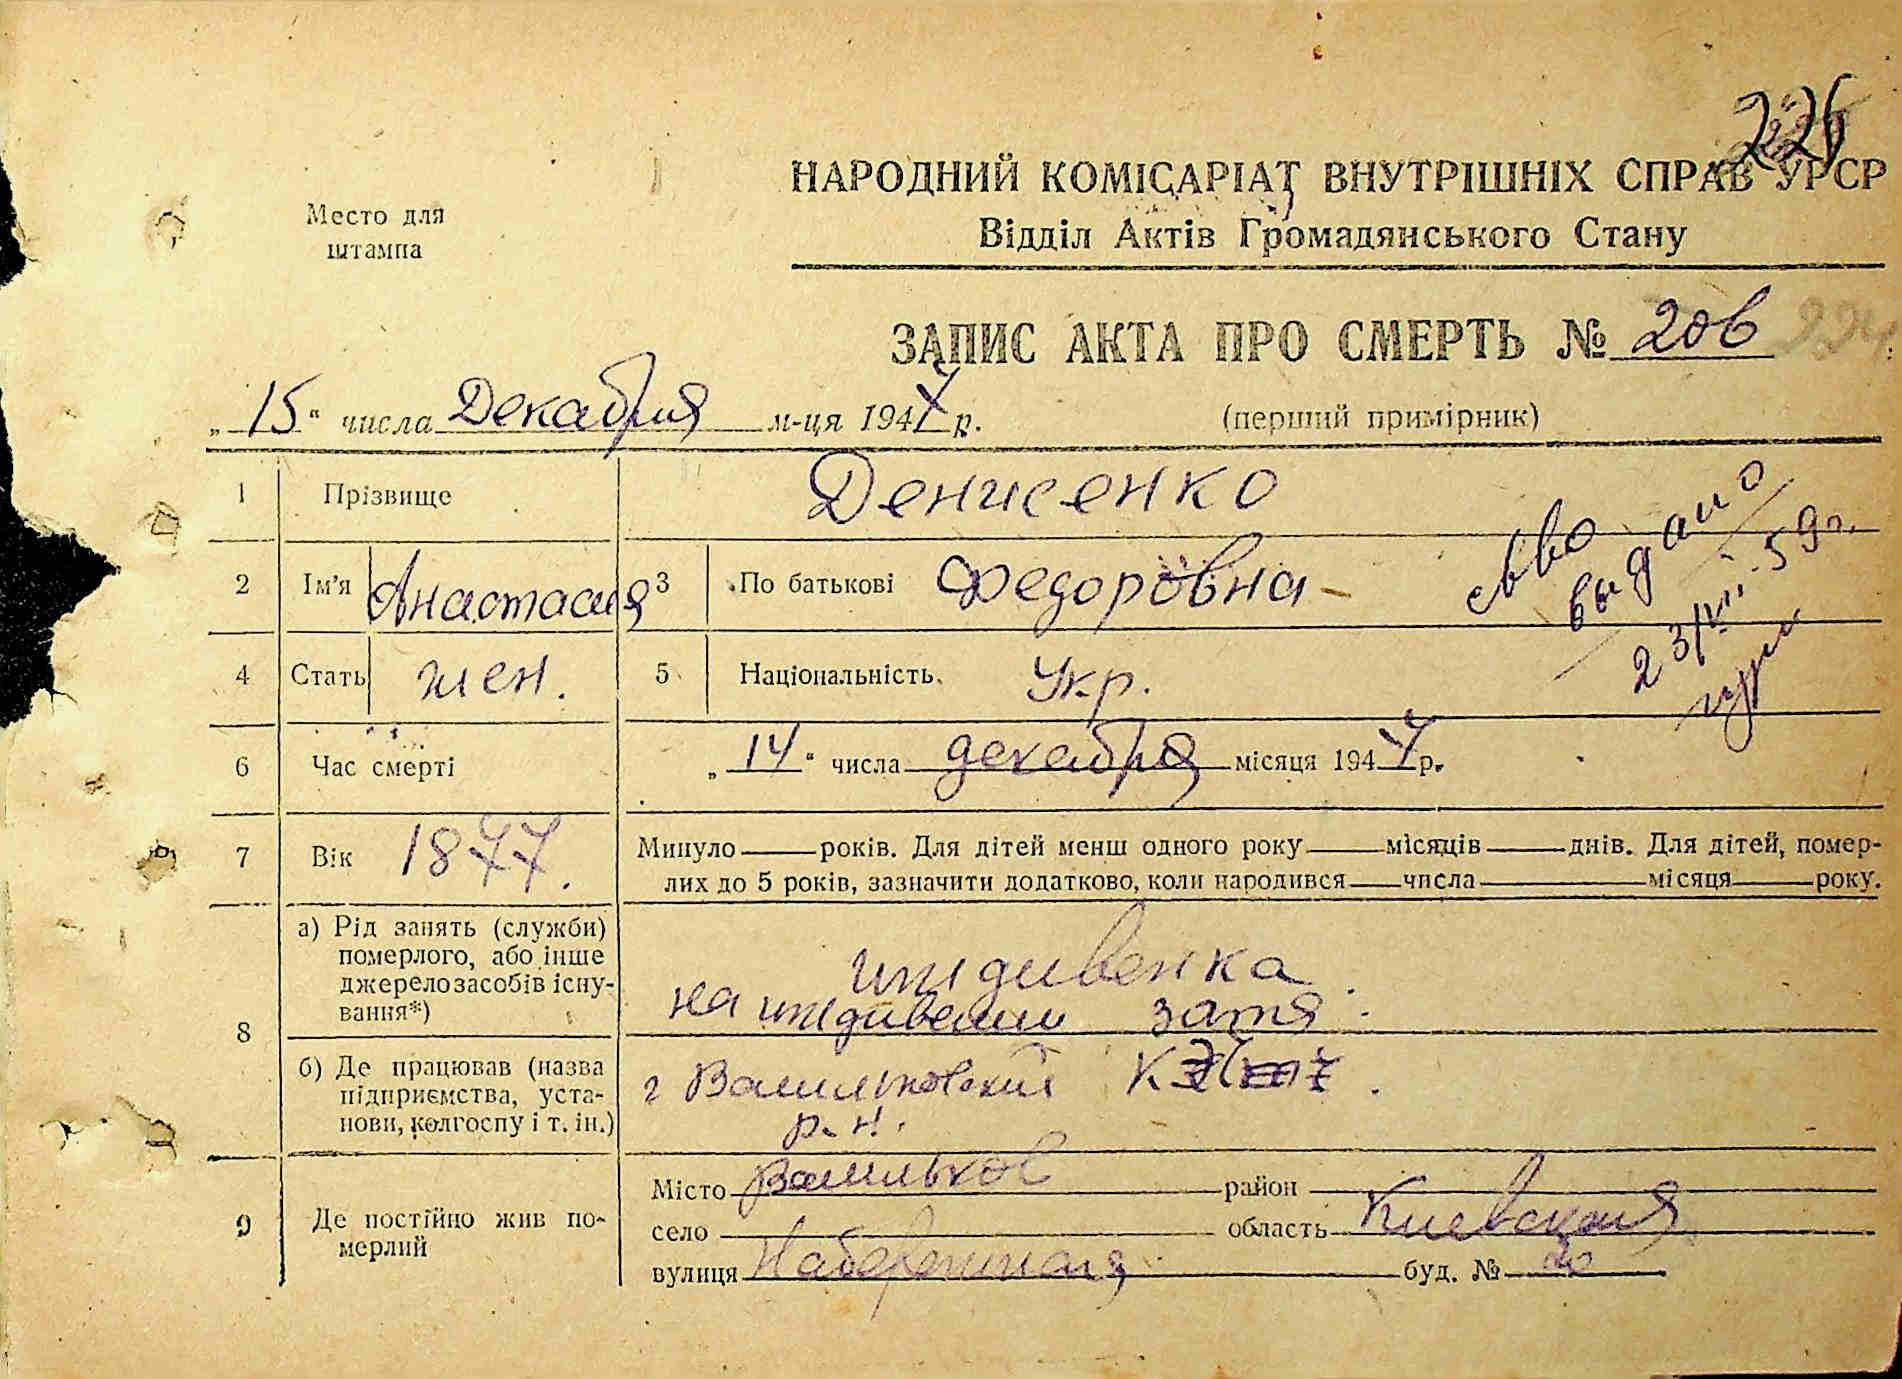 226
Место для
штампа
НАРОДНИЙ КОМІСАРІАТ ВНУТРІШНІХ СПРАВ УРСР
Відділ Актів Громадянського Стану
ЗАПИС АКТА ПРО СМЕРТЬ № 206 224
„15“ числа Декабря м-ця 1947 р. (перший примірник)
1 Прізвище Денисенко
2 Ім'я Анастасия 3 По батькові Федоровна
4 Стать жен. 5 Національність Укр.
с-во
выдано
23/VII-59г.
6 Час смерті „14“ числа декабря місяця 1947 р.
7 Вік 1877. Минуло років. Для дітей менш одного року місяців днів. Для дітей, помер-
лих до 5 років, зазначити додатково, коли народився числа місяця року.
8 а) Рід занять (служби)
померлого, або інше
джерело засобів існу-
вання*)
иждивенка.
на иждивении зятя.
б) Де працював (назва
підприємства, уста-
нови, колгоспу і т. ін.)
г Васильковский
р. н.
9 Де постійно жив по-
мерлий
Місто Васильков район
село область Киевская
вулиця Набережная буд. № 20